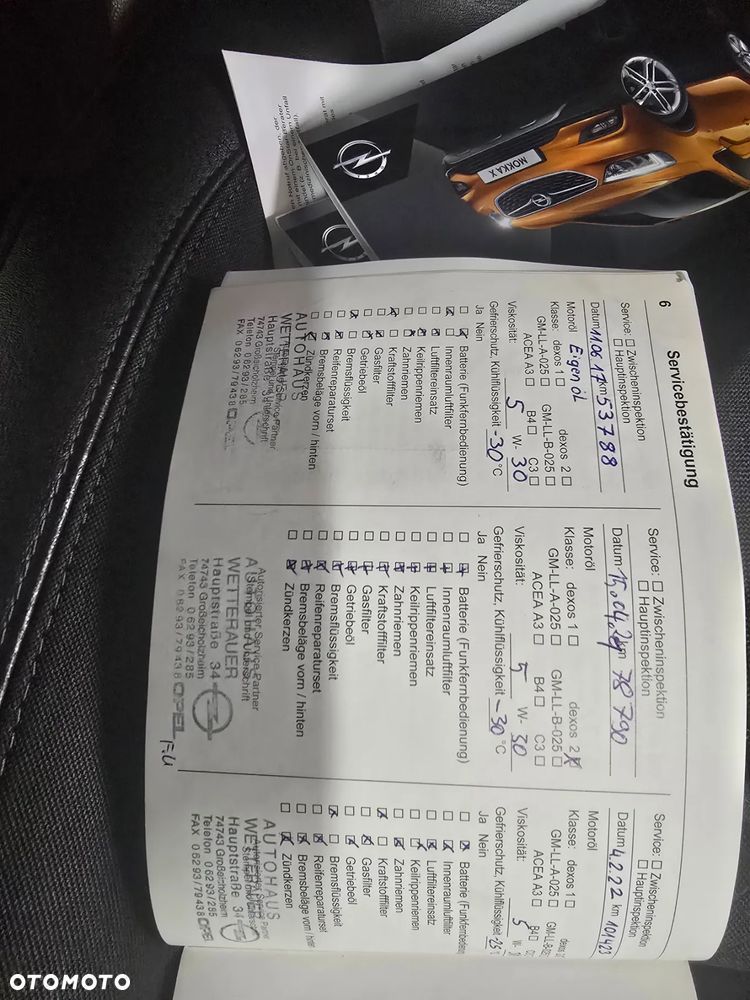 MOKKA X
6
Servicebestätigung
Service: □ Zwischeninspektion
□ Hauptinspektion
Datum 11.06.17 km 53788
Motoröl Eigenöl
Klasse: dexos 1 □ dexos 2 □
GM-LL-A-025 □ GM-LL-B-025 □
ACEA A3 □ B4 □ C3 □
Viskosität: 5 W- 30
Gefrierschutz, Kühlflüssigkeit -30 °C
Ja Nein
Batterie (Funkfernbedienung)
Innenraumluftfilter
Luftfiltereinsatz
Keilrippenriemen
Zahnriemen
Kraftstofffilter
Gasfilter
Getriebeöl
Bremsflüssigkeit
Reifenreparaturset
Bremsbeläge vorn / hinten
Zündkerzen
AUTOHAUS
WETTERAUER
Hauptstraße 34
74743 Großeicholzheim
Telefon 06293/285
FAX 06293/79438 OPEL
Service: □ Zwischeninspektion
□ Hauptinspektion
Datum km 78790
Motoröl
Klasse: dexos 1 □ dexos 2 ☒
GM-LL-A-025 □ GM-LL-B-025 □
ACEA A3 □ B4 □ C3 □
Viskosität: 5 W- 30
Gefrierschutz, Kühlflüssigkeit -30 °C
Ja Nein
Batterie (Funkfernbedienung)
Innenraumluftfilter
Luftfiltereinsatz
Keilrippenriemen
Zahnriemen
Kraftstofffilter
Gasfilter
Getriebeöl
Bremsflüssigkeit
Reifenreparaturset
Bremsbeläge vorn / hinten
Zündkerzen
Autorisierter Service Partner
WETTERAUER
Hauptstraße 34
74743 Großeicholzheim
Telefon 06293/285
FAX 06293/79438 OPEL
Service: □ Zwischeninspektion
□ Hauptinspektion
Datum 4.2.22 km 101423
Motoröl
Klasse: dexos 1 □
GM-LL-A-025 □
ACEA A3 □ B4 □
Viskosität: 5 W-
Gefrierschutz, Kühlflüssigkeit -25
Ja Nein
Batterie (Funkfernbedienung
Innenraumluftfilter
Luftfiltereinsatz
Keilrippenriemen
Zahnriemen
Kraftstofffilter
Gasfilter
Getriebeöl
Bremsflüssigkeit
Reifenreparaturset
Bremsbeläge vorn /
Zündkerzen
AUTOHAUS
Hauptstraße 34
74743 Großeicholzheim
Telefon 06293/285
FAX 06293/79438 OPEL
OTOMOTO